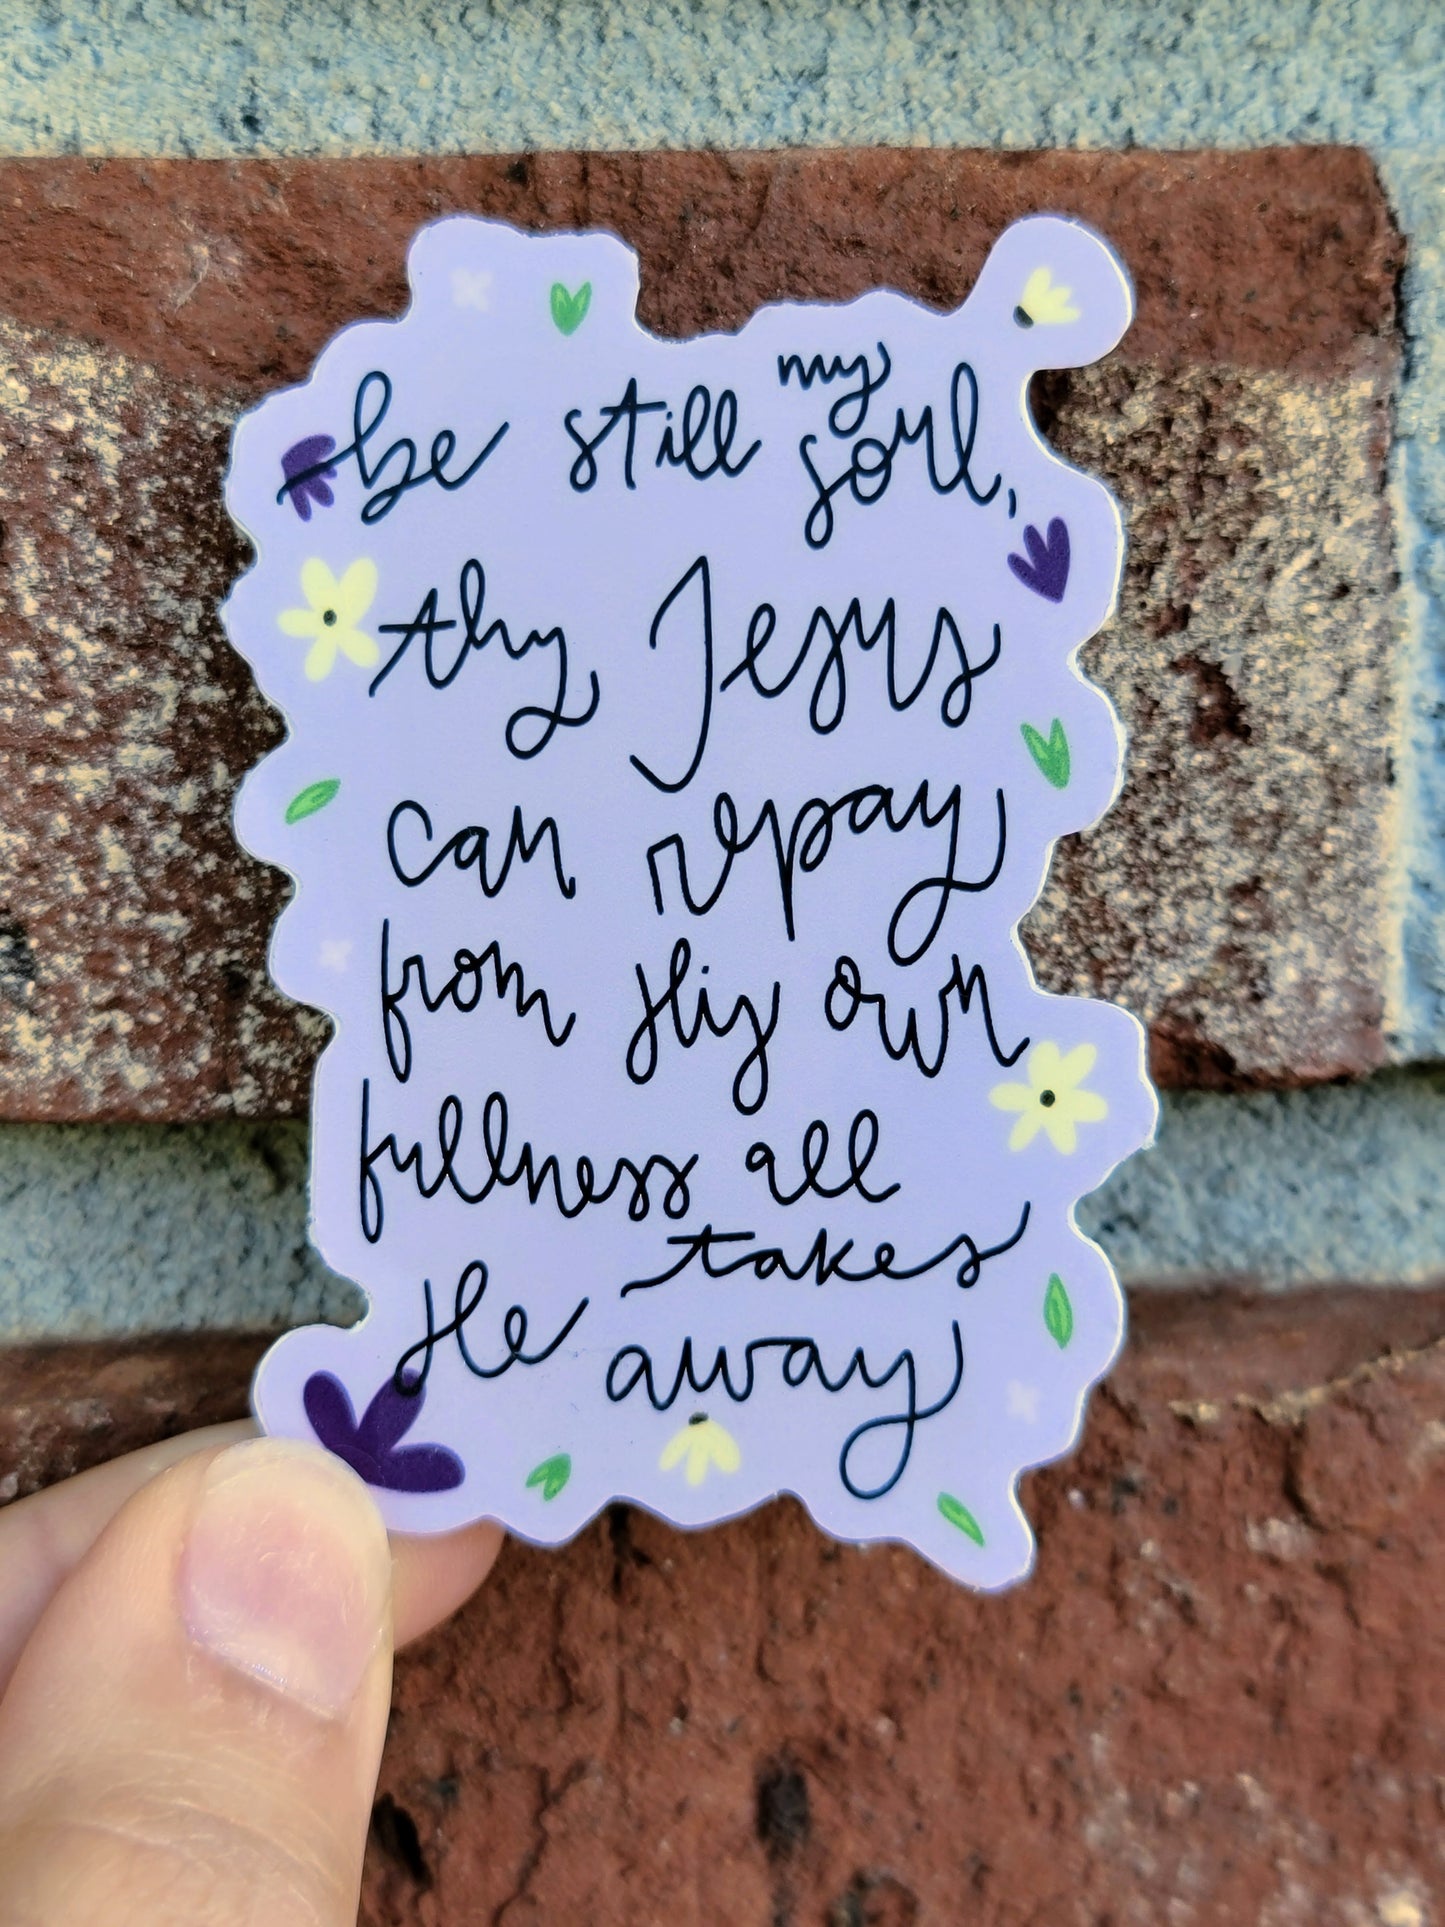 be still my soul,
thy Jesus
can repay
from His own
fullness all
He takes
away